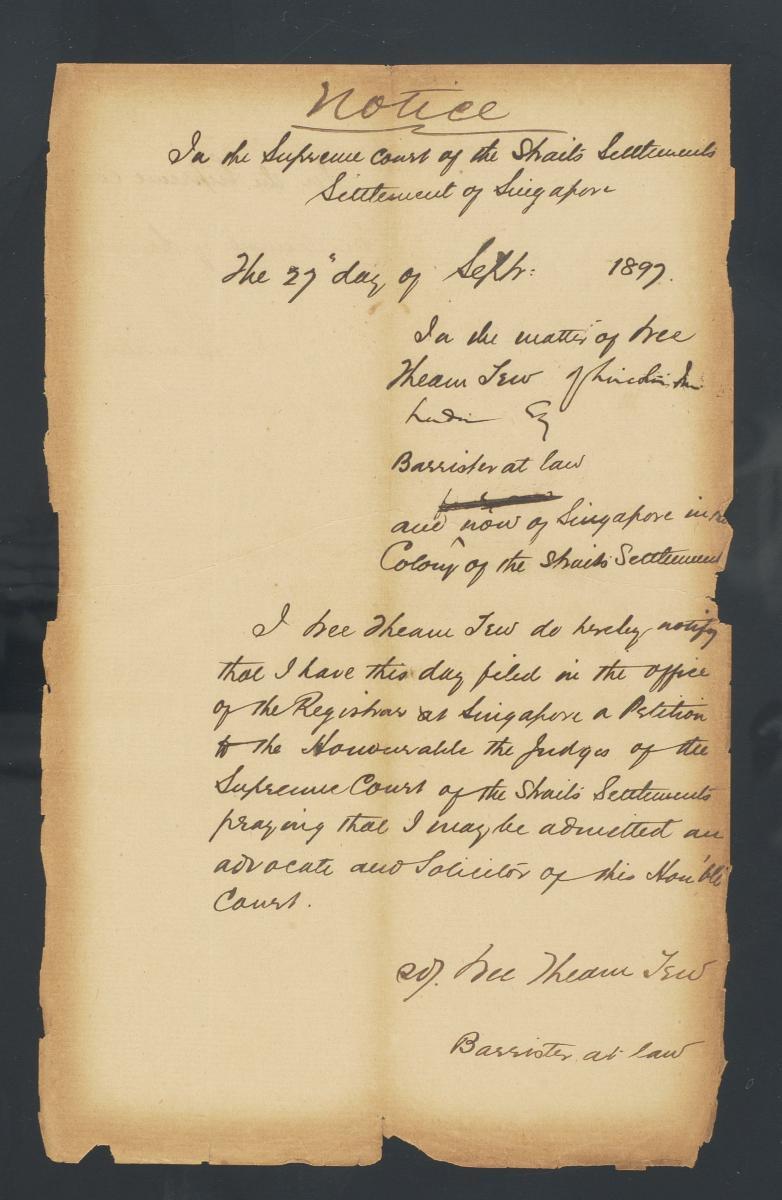 Notice
In the Supreme Court of the Straits Settlements
Settlement of Singapore
The 27" day of Septr: 1897.
In the matter of Wee
Theam Tew of Lincoln's Inn
London Esq
Barrister at law
and now of Singapore in the
Colony of the Straits Settlement
I Wee Theam Tew do hereby notify
that I have this day filed in the office
of the Registrar at Singapore a Petition
to the Honourable the Judges of the
Supreme Court of the Straits Settlements
praying that I may be admitted an
advocate and Solicitor of this Hon'ble
Court.
sd/. Wee Theam Tew
Barrister at law